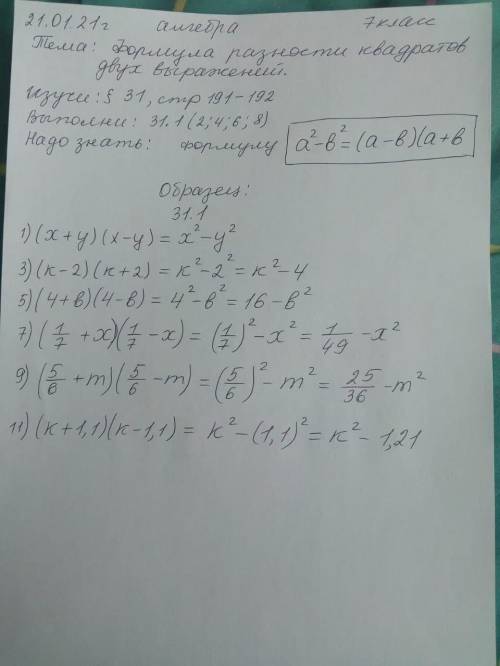 21.01.21г алгебра 7класс
Тема: Формула разности квадратов
двух выражений.
Изучи: § 31, стр 191-192
Выполни: 31.1 (2; 4; 6; 8)
Надо знать: формулу a²-в²=(a-в)(a+в
Образец:
31.1
1) (x+y)(x-y) = x²-y²
3) (к-2)(к+2) = к²-2² = к²-4
5) (4+в)(4-в) = 4²-в² = 16-в²
7) (1/7 + x)(1/7 - x) = (1/7)² - x² = 1/49 - x²
9) (5/6 + m)(5/6 - m) = (5/6)² - m² = 25/36 - m²
11) (к+1,1)(к-1,1) = к² - (1,1)² = к² - 1,21